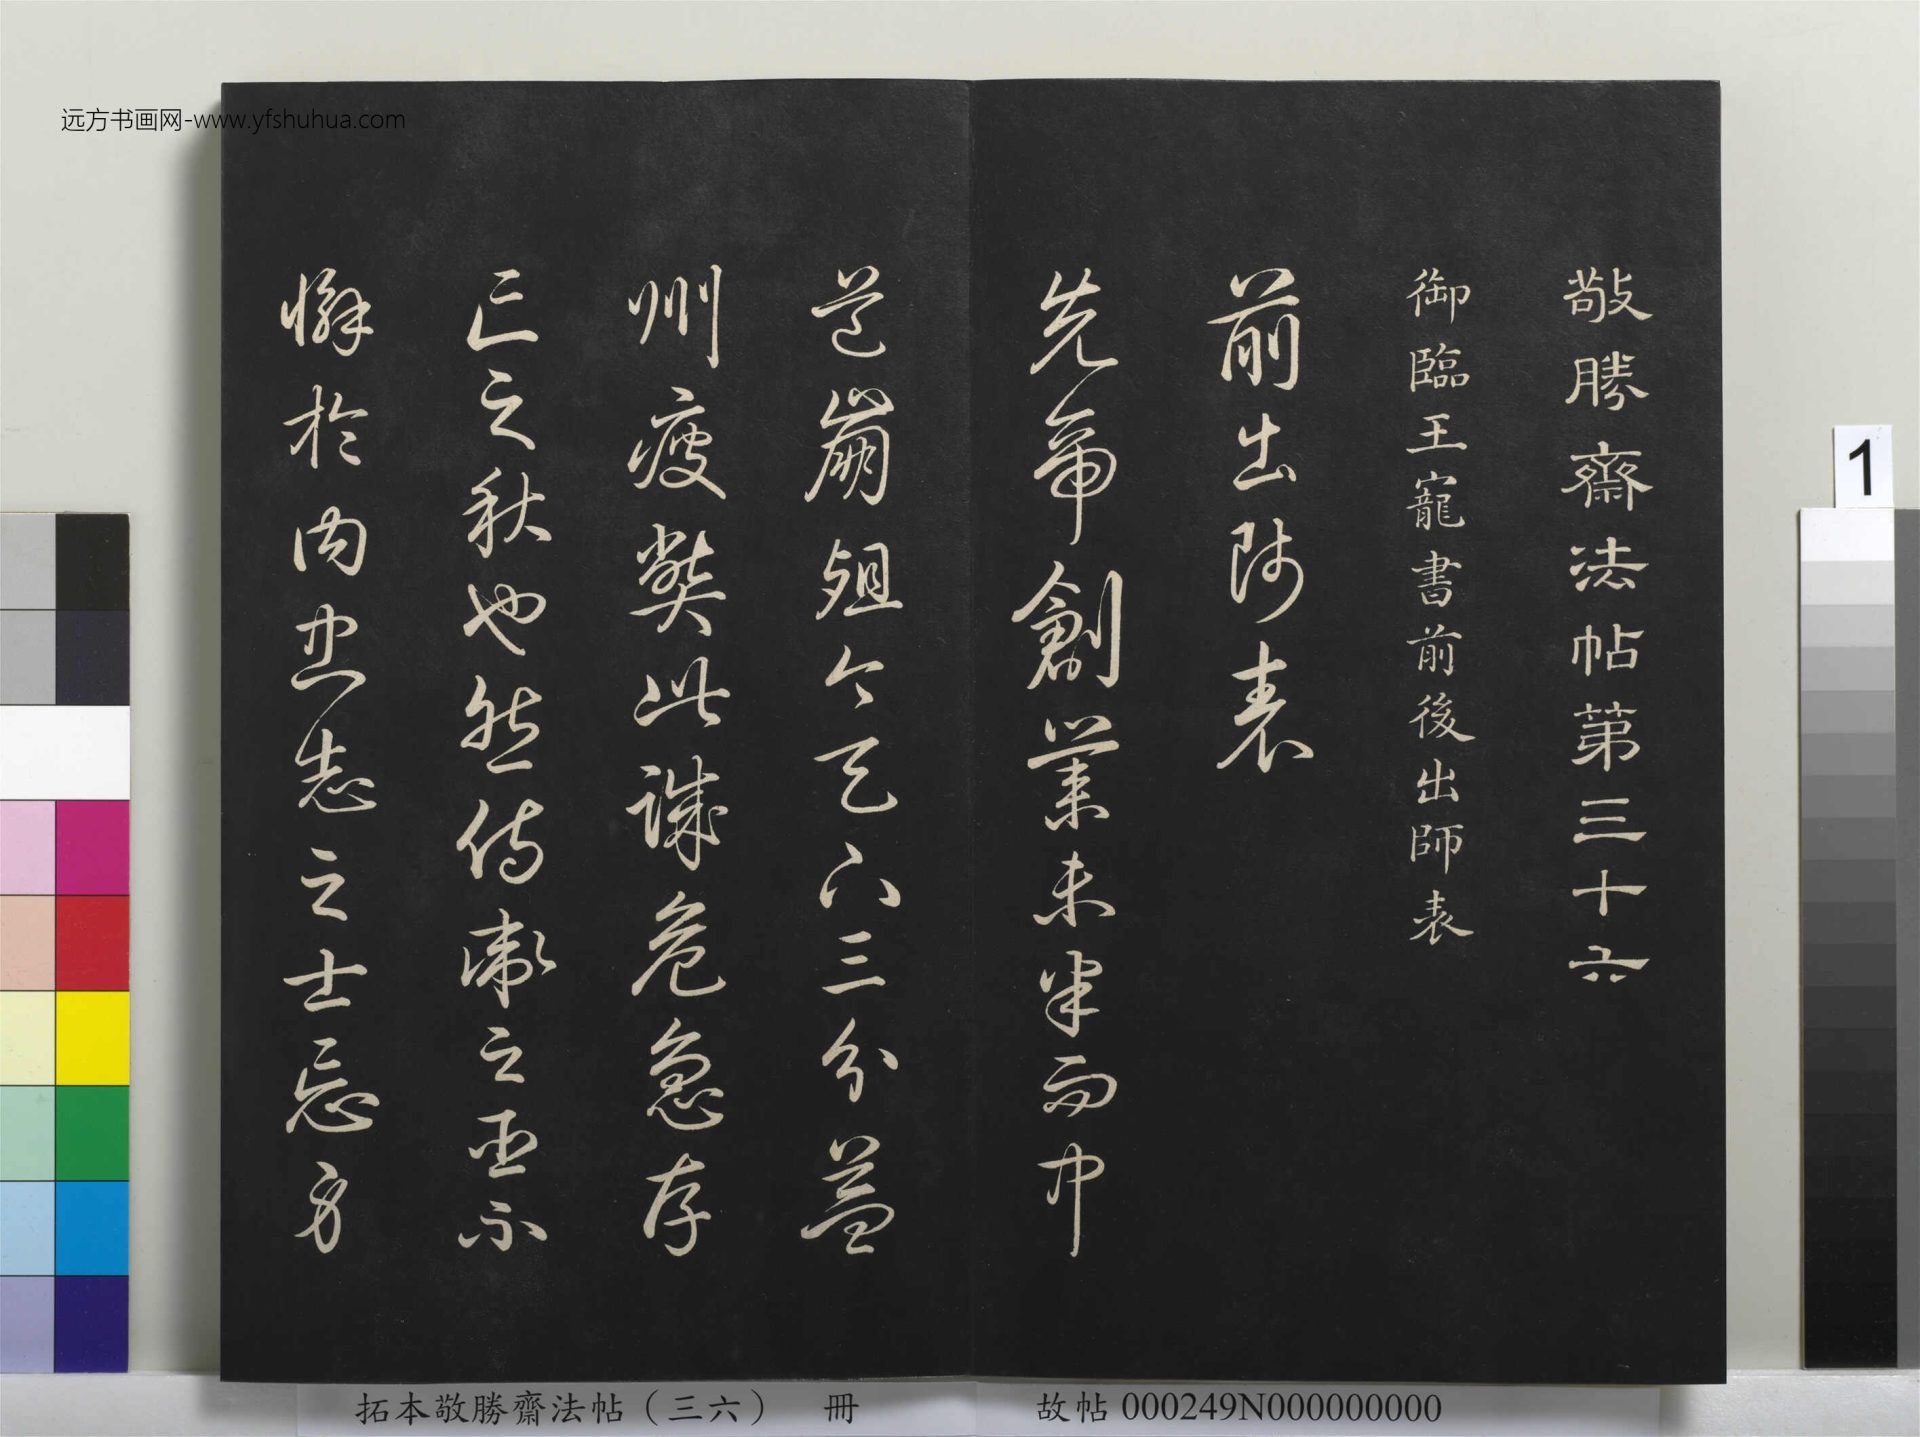 远方书画网-www.yfshuhua.com
敬勝齋法帖第三十六
御臨王寵書前後出師表
前出師表
先帝創業未半而中
道崩殂今天下三分益
州疲獘此誠危急存
亡之秋也然侍衛之臣不
懈於内忠志之士忘身
1
拓本敬勝齋法帖（三六） 冊 故帖000249N000000000